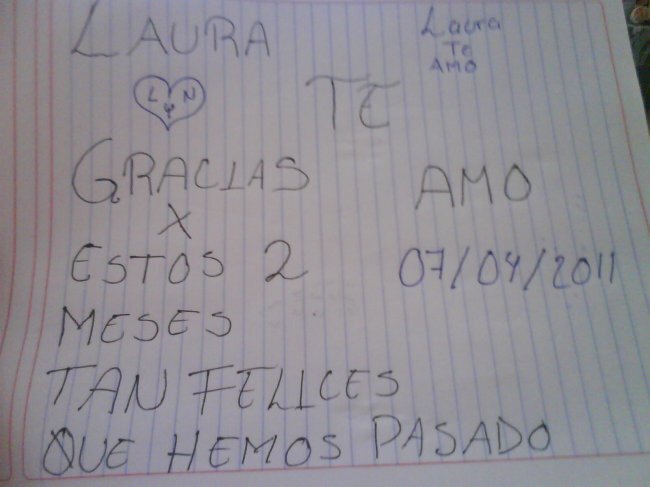 LAURA
Laura
Te
AMO
L y N
TE
AMO
GRACIAS
X
ESTOS 2
07/04/2011
MESES
TAN FELICES
QUE HEMOS PASADO